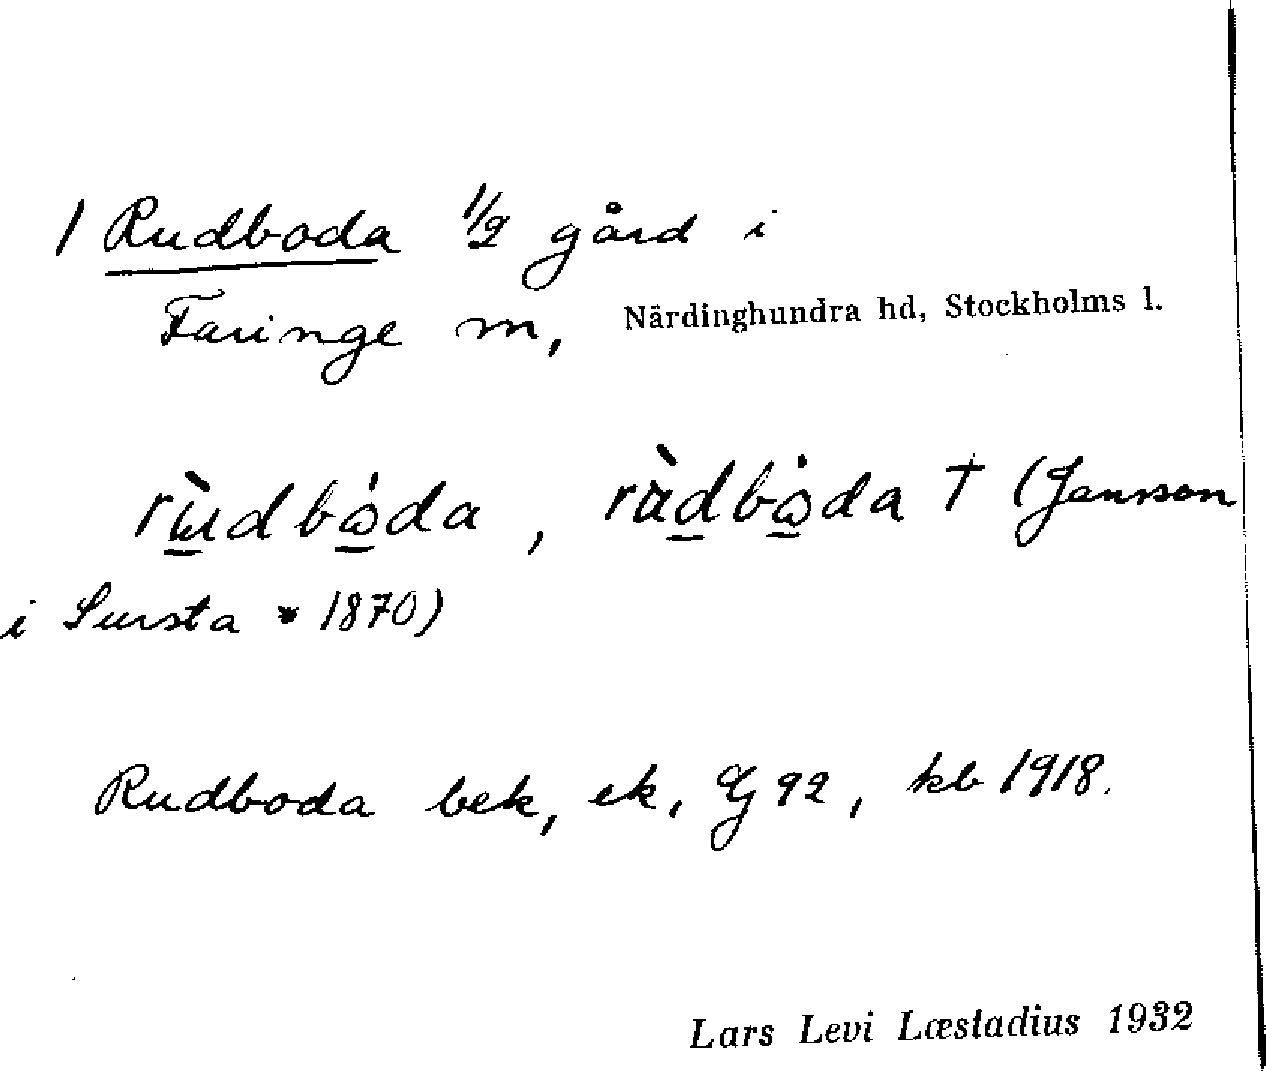 1 Rudboda 1/2 gård i
Faringe sn, Närdinghundra hd, Stockholms l.
rùdbȯda, ràdbȯda † (Jansson
i Sursta * 1870)
Rudboda bek, ek, Gj 92, kb 1918.
Lars Levi Læstadius 1932